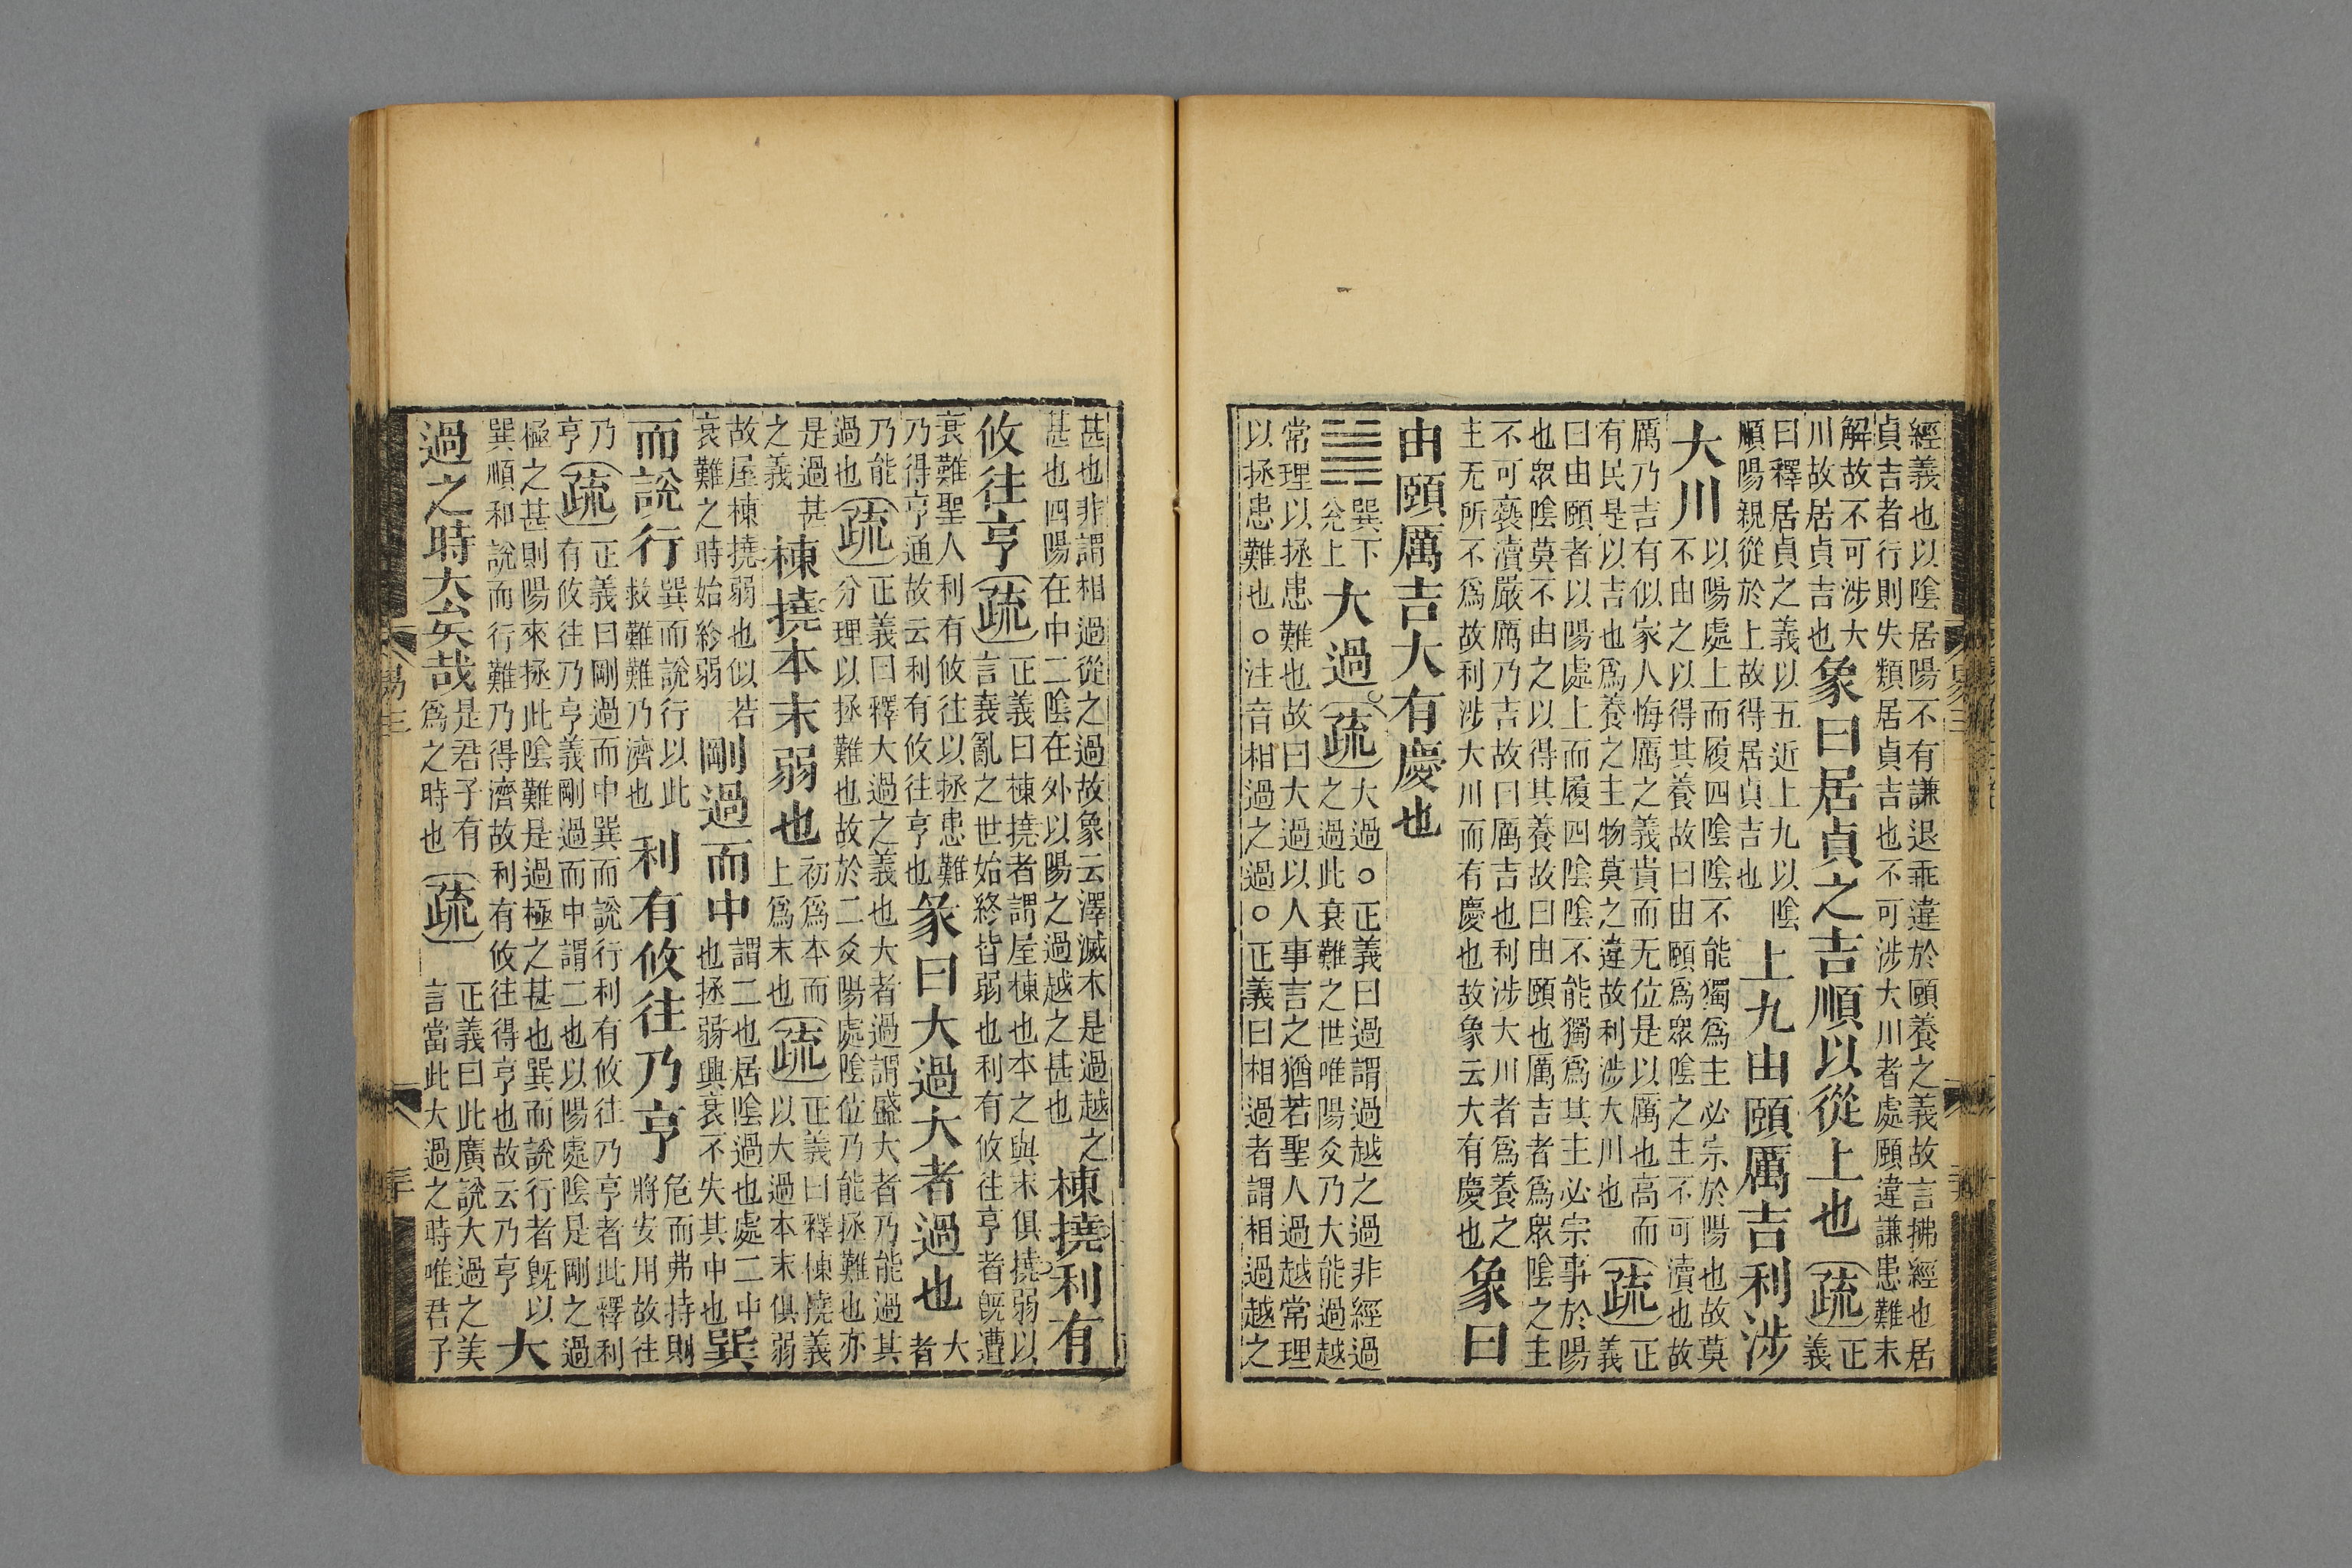 經義也以陰居陽不有謙退乖違於頤養之義故言拂經也居
貞吉者行則失類居貞吉也不可涉大川者處頤違謙患難未
解故不可涉大
川故居貞吉也
象曰居貞之吉順以從上也
疏
正
義
曰釋居貞之義以五近上九以陰
順陽親從於上故得居貞吉也
上九由頤厲吉利涉
大川
以陽處上而履四陰陰不能獨爲主必宗於陽也故莫
不由之以得其養故曰由頤爲眾陰之主不可瀆也故
厲乃吉有似家人悔厲之義貴而无位是以厲也高而
有民是以吉也爲養之主物莫之違故利涉大川也
疏
正
義
曰由頤者以陽處上而履四陰陰不能獨爲其主必宗事於陽
也眾陰莫不由之以得其養故曰由頤也厲吉者爲眾陰之主
不可褻瀆嚴厲乃吉故曰厲吉也利涉大川者爲養之
主无所不爲故利涉大川而有慶也故象云大有慶也
象曰
由頤厲吉大有慶也
䷛
巽下
兌上
大過
疏
大過○正義曰過謂過越之過非經過
之過此衰難之世唯陽爻乃大能過越
常理以拯患難也故曰大過以人事言之猶若聖人過越常理
以拯患難也○注音相過之過○正義曰相過者謂相過越之
甚也非謂相過從之過故象云澤滅木是過越之
甚也四陽在中二陰在外以陽之過越之甚也
棟撓利有
攸往亨
疏
正義曰棟撓者謂屋棟也本之與末俱撓弱以
言衰亂之世始終皆弱也利有攸往亨者既遭
衰難聖人利有攸往以拯患難
乃得亨通故云利有攸往亨也
彖曰大過大者過也
大
者
乃能
過也
疏
正義曰釋大過之義也大者過謂盛大者乃能過其
分理以拯難也故於二爻陽處陰位乃能拯難也亦
是過甚
之義
棟撓本末弱也
初爲本而
上爲末也
疏
正義曰釋棟撓義
以大過本末俱弱
故屋棟撓弱也似若
衰難之時始終弱
剛過而中
謂二也居陰過也處二中
也拯弱興衰不失其中也
巽
而說行
巽而說行以此
救難難乃濟也
利有攸往乃亨
危而弗持則
將安用故往
乃
亨
疏
正義曰剛過而中巽而說行利有攸往乃亨者此釋利
有攸往乃亨義剛過而中謂二也以陽處陰是剛之過
極之甚則陽來拯此陰難是過極之甚也巽而說行者既以
巽順和說而行難乃得濟故利有攸往得亨也故云乃亨
大
過之時大矣哉
是君子有
爲之時也
疏
正義曰此廣說大過之美
言當此大過之時唯君子
易三
三十